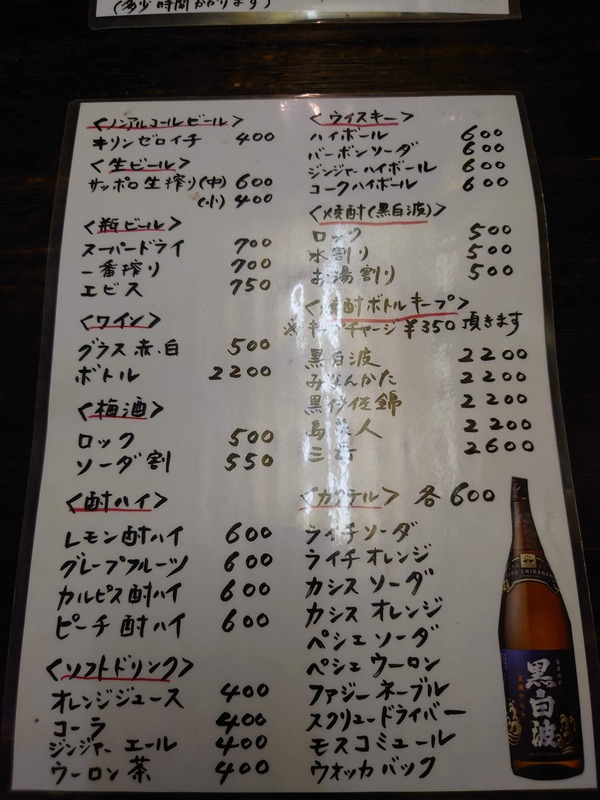 (多少時間かかります)
<ノンアルコールビール>
キリンゼロイチ 400
<生ビール>
サッポロ生搾り(中) 600
(小) 400
<瓶ビール>
スーパードライ 700
一番搾り 700
エビス 750
<ワイン>
グラス赤.白 500
ボトル 2200
<梅酒>
ロック 500
ソーダ割 550
<酎ハイ>
レモン酎ハイ 600
グレープフルーツ 600
カルピス酎ハイ 600
ピーチ酎ハイ 600
<ソフトドリンク>
オレンジジュース 400
コーラ 400
ジンジャーエール 400
ウーロン茶 400
<ウイスキー>
ハイボール 600
バーボンソーダ 600
ジンジャーハイボール 600
コークハイボール 600
<焼酎(黒白波)>
ロック 500
水割り 500
お湯割り 500
<焼酎ボトルキープ>
※キープチャージ¥350頂きます
黒白波 2200
みなんかた 2200
黒伊佐錦 2200
島美人 2200
三岳 2600
<カクテル> 各600
ライチソーダ
ライチオレンジ
カシスソーダ
カシスオレンジ
ペシェソーダ
ペシェウーロン
ファジーネーブル
スクリュードライバー
モスコミュール
ウォッカバック
黒白波